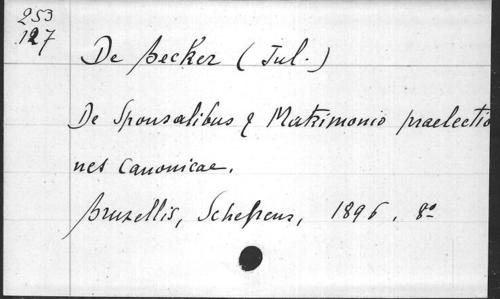 253
127
De Becker (Jul.)
De Sponsalibus & Matrimonio praelectio
nes Canonicae.
Bruxellis, Schepens, 1896. 8º